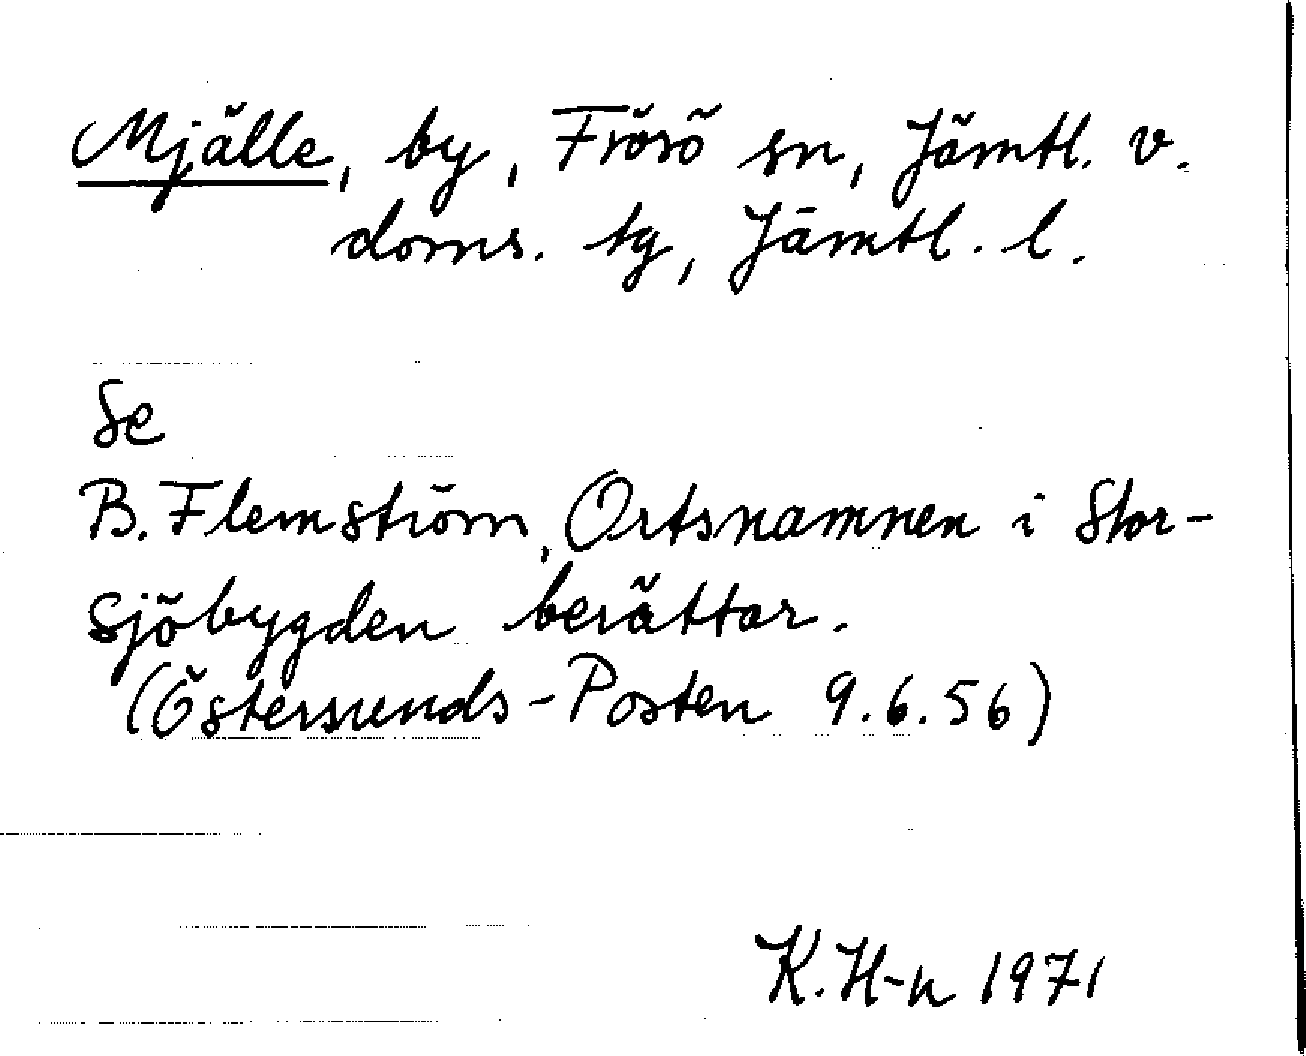 Mjälle, by, Frösö sn, Jämtl. v.
doms. tg, Jämtl. l.
Se
B. Flemström, Ortsnamnen i Stor-
sjöbygden berättar.
(Östersunds-Posten 9.6.56)
K. H-n 1971